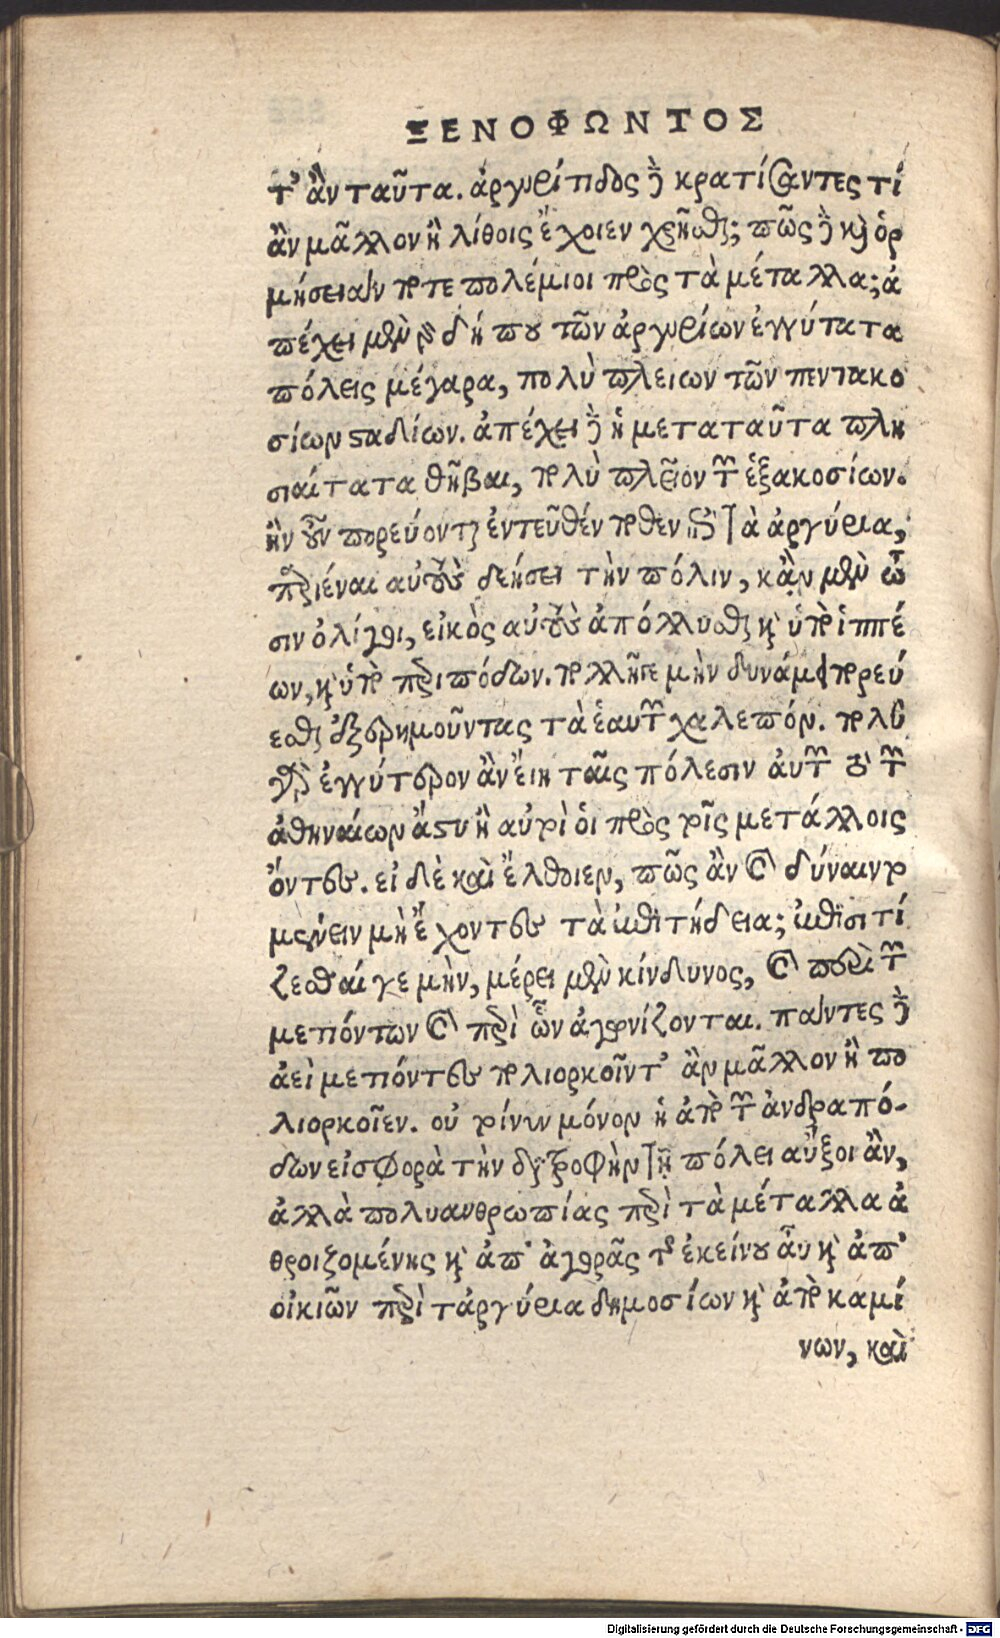 ΞΕΝΟΦΩΝΤΟΣ
τ' ἂν ταῦτα. ἀργυρίτιδος δὲ κρατήσαντες τί
ἂν μᾶλλον ἢ λίθοις ἔχοιεν χρῆσθαι; πῶς δὲ καὶ ὁρ
μήσειαν ποτε πολέμιοι πρὸς τὰ μέταλλα; ἀ
πέχει μὲν γὰρ δή που τῶν ἀργυρίων ἐγγύτατα
πόλεις μέγαρα, πολὺ πλειων τῶν πεντακο
σίων σταδίων. ἀπέχει δὲ ἡ μεταταῦτα πλη
σιαίτατα θῆβαι, πολὺ πλεῖον τῶν ἑξακοσίων.
ἢν οὖν πορεύονται ἐντεῦθέν ποθεν ἐπὶ τὰ ἀργύρια,
παριέναι αὐτοὺς δεήσει τὴν πόλιν, κἂν μὲν ὦ
σιν ὀλίγοι, εἰκὸς αὐτοὺς ἀπόλλυσθαι καὶ ὑπὸ ἱππέ
ων, καὶ ὑπὸ περιπόδων. πολλῆ γε μὴν δυνάμει πορεύ
εσθαι ἐξερημοῦντας τὰ ἑαυτῶν χαλεπόν. πολὺ
γὰρ ἐγγύτερον ἂν εἴη ταῖς πόλεσιν αὐτῶν τὸ τῶν
ἀθηναίων ἄστυ ἢ αὐτοὶ οἱ πρὸς τοῖς μετάλλοις
ὄντες. εἰ δὲ καὶ ἔλθοιεν, πῶς ἂν καὶ δύναιντο
μένειν μὴ ἔχοντες τὰ ἐπιτήδεια; ἐπισιτί
ζεσθαί γε μὴν, μέρει μὲν κίνδυνος, καὶ περὶ τῶν
μετιόντων καὶ περὶ ὧν ἀγωνίζονται. πάντες δὲ
ἀεὶ μετιόντες πολιορκοῖντ' ἂν μᾶλλον ἢ πο
λιορκοῖεν. οὐ τοίνυν μόνον ἡ ἀπὸ τῶν ἀνδραπό-
δων εἰσφορὰ τὴν διατροφὴν τῇ πόλει αὔξοι ἂν,
ἀλλὰ πολυανθρωπίας περὶ τὰ μέταλλα ἀ
θροιζομένης καὶ ἀπ' ἀγορᾶς τῆς ἐκείνου ἂυ καὶ ἀπ'
οἰκιῶν περὶ τἀργύρια δημοσίων καὶ ἀπὸ καμί
νων, καὶ
Digitalisierung gefördert durch die Deutsche Forschungsgemeinschaft - DFG